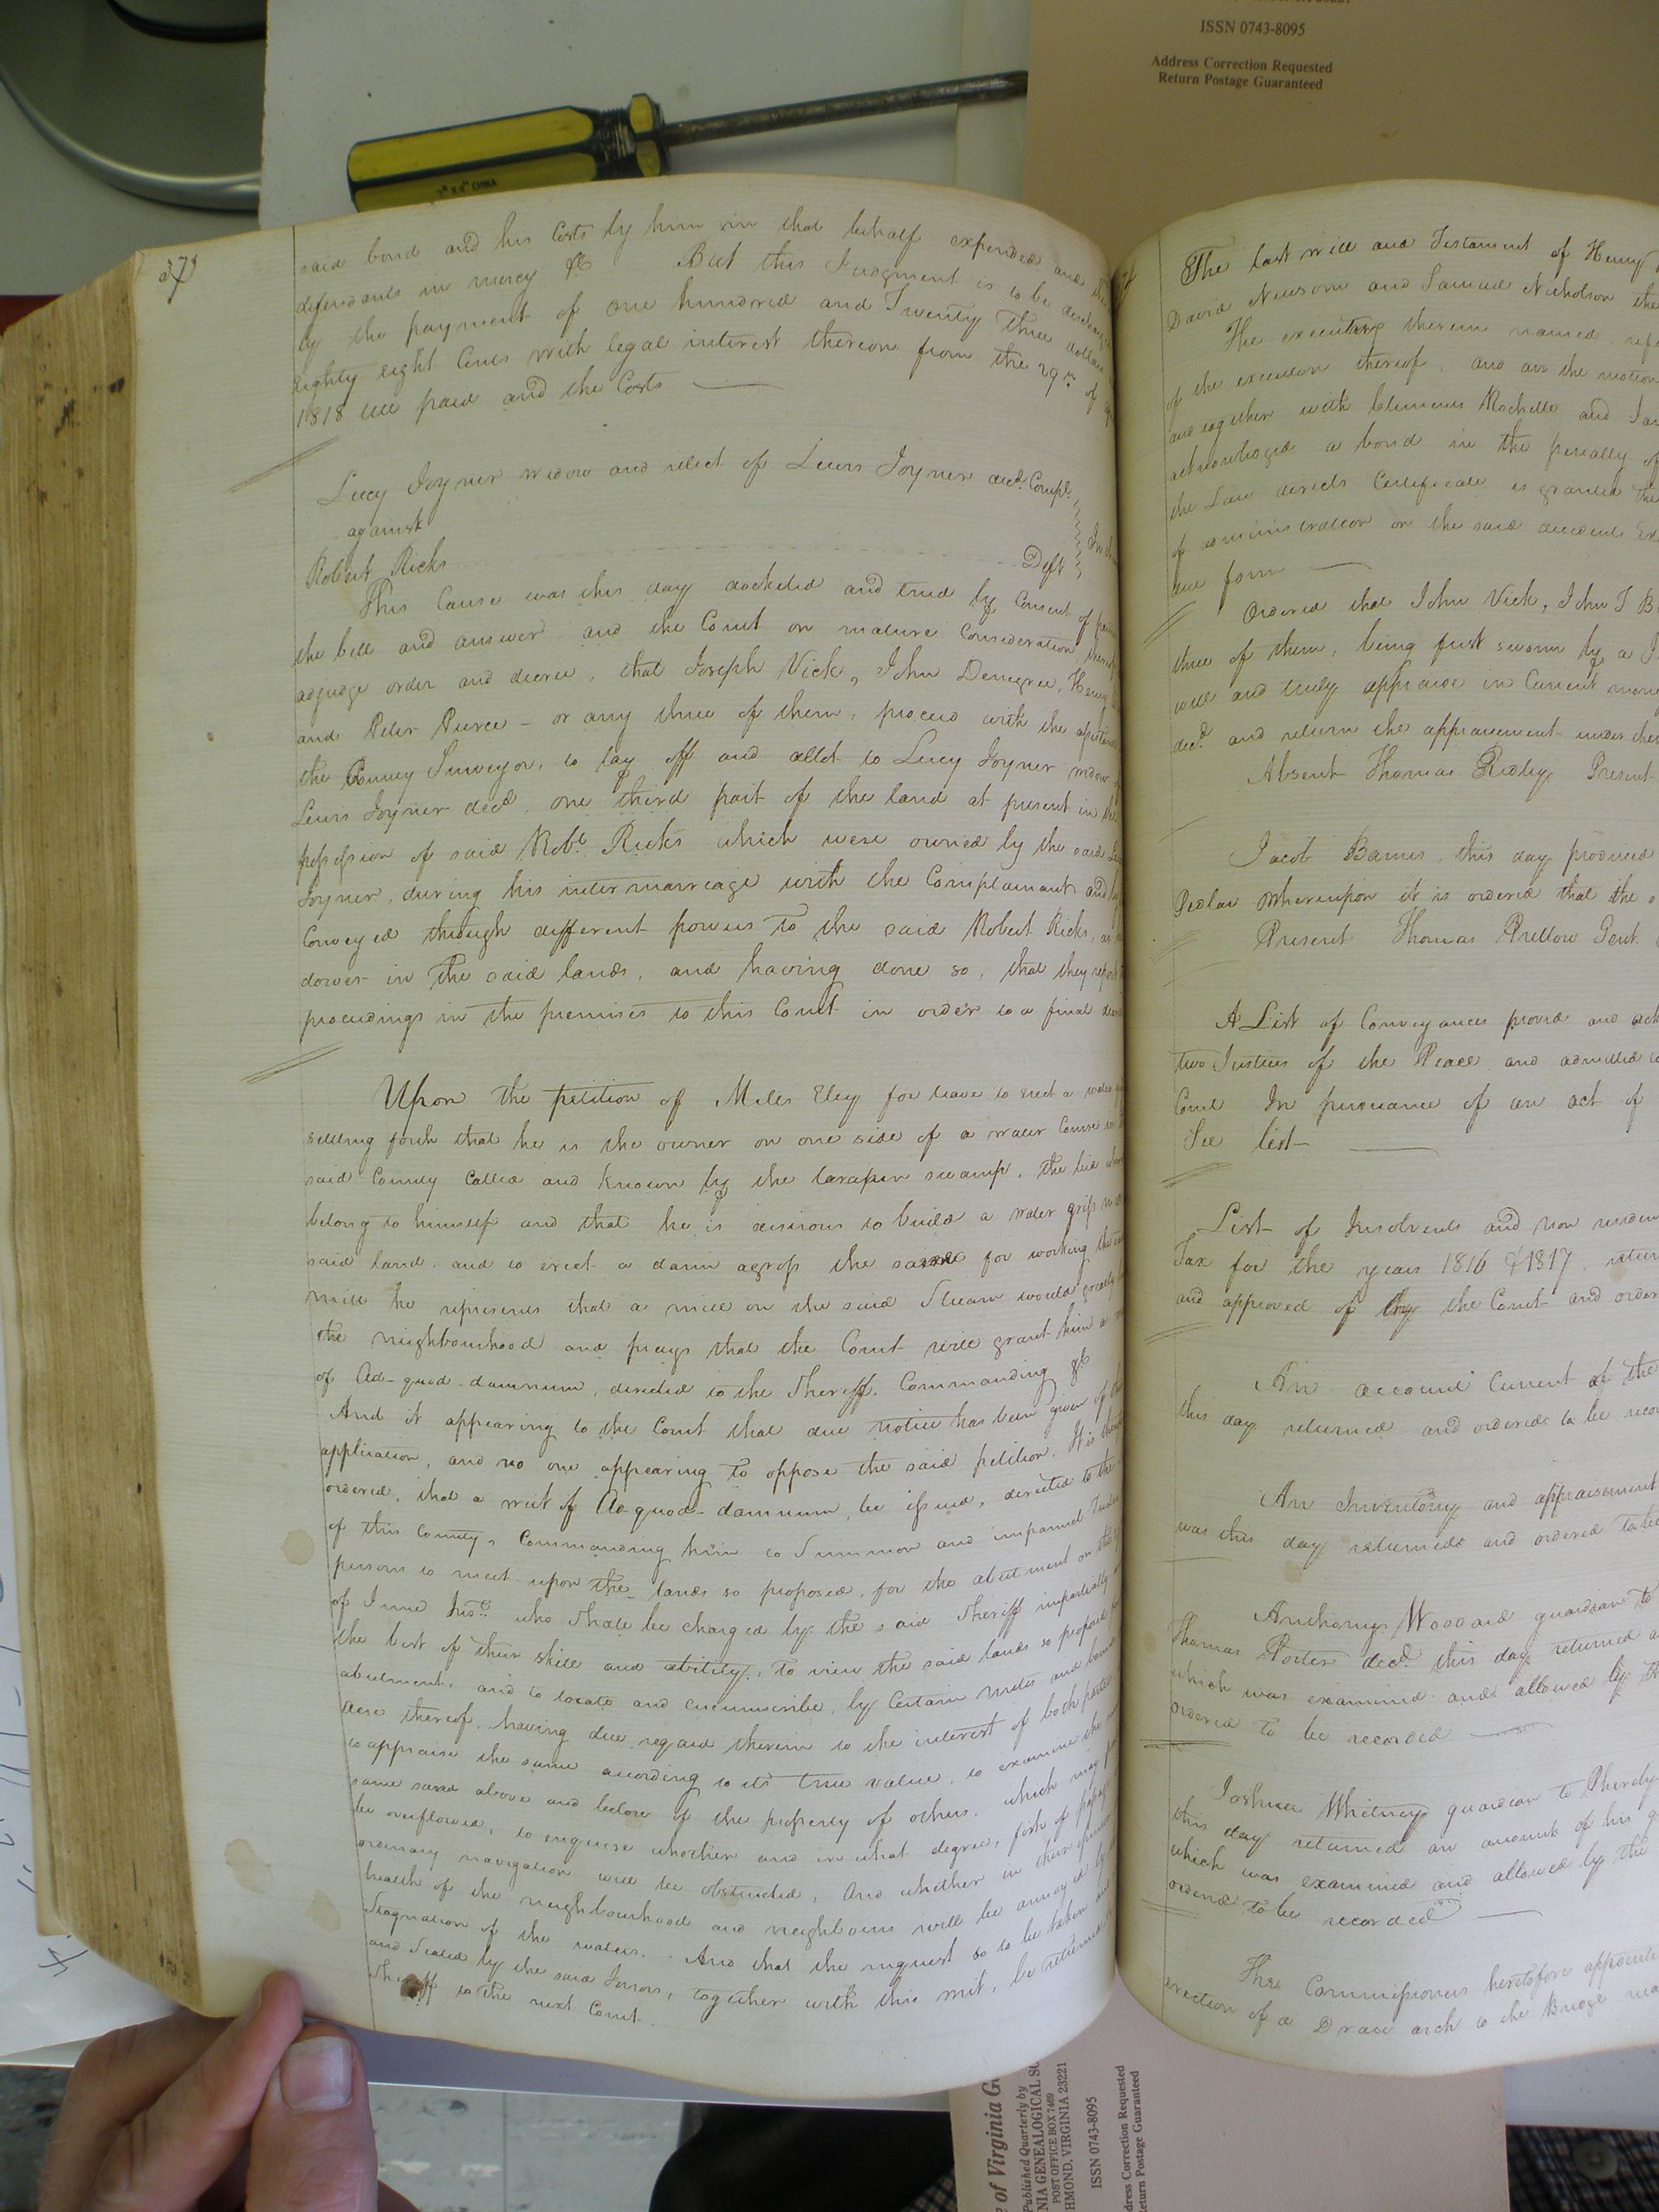 ISSN 0743-8095
Address Correction Requested
Return Postage Guaranteed
373
said bond and his Costs by him in that behalf expended and the
defendants in mercy &c But this Judgment is to be discharged
by the payment of one hundred and Twenty three dollars
eighty eight Cents with legal interest thereon from the 29th of
1818 till paid and the Costs
Lucy Joyner widow and relict of Lewis Joyner decd. Complt.
against
Robert Ricks Deft
This Cause was this day docketed and tried by Consent of
the bill and answer and the Court on mature Consideration thereof
adjudge order and decree, that Joseph Vick, John Denegree, Henry
and Peter Pierce - or any three of them, proceed with the
the County Surveyor, to lay off and allot to Lucy Joyner widow of
Lewis Joyner decd. one third part of the land at present in the
possession of said Robt. Ricks which were owned by the said
Joyner, during his intermarreage with the Complainant and
Conveyed through different powers to the said Robert Ricks, as
dower in the said lands, and having done so, that they report
proceedings in the premises to this Court in order to a final
Upon the petition of Miles Eley for leave to erect a water
setting forth that he is the owner on one side of a water Course in
said County Called and known by the tarapin swamp, the bed
belong to himself and that he is desirous to build a water grist
said land, and to erect a damm across the same for working the
mill he represents that a mill on the said Stream would greatly
the neighbourhood and prays that the Court will grant him a
of Ad-quod-damnum, directed to the Sheriff. Commanding &c
And it appearing to the Court that due notice has been given of
application, and no one appearing to oppose the said petition. It is
ordered, that a writ of Ad-quod-damnum, be issued, directed to the
of this County, Commanding him to Summon and impannel
persons to meet upon the lands so proposed, for the abutment on the
of June Inst. who shall be charged by the said Sheriff impartially
the best of their skill and ability, To view the said lands so proposed
abutment, and to locate and circumscribe, by Certain metes and
acre thereof, having due regard therein to the interest of both parties
to appraise the same according to its true value, to examine the
same above and below of the property of others, which may
be overflowed, to enquire whether and in what degree, fish of passage
ordinary navigation will be obstructed, And whether in their opinion
health of the neighbourhood and neighbours will be annoyed by
Stagnation of the waters. And that the inquest so to be taken
and Sealed by the said Jurors, together with this writ, be returned
Sheriff to the next Court.
The last will and Testament of Henry
David Newsom and Samuel Nicholson the
The therein named
of the execution thereof, and on the motion
and together with Clements Rochelle and
acknowledged a bond in the penalty of
the Law directs Certificate is granted
of administration on the said decedents
due form
Ordered that John Vick, John T
three of them, being first sworn by a
well and truly appraise in Current money
decd. and return the appraisement under
Absent Thomas Ridley Present
Jacob Barnes this day produced
Pedlar Whereupon it is ordered that the
Present Thomas Pretlow Gent.
A List of Conveyances proved and
two Justices of the Peace and admitted
Court In pursuance of an act of
See list
List of Insolvents and non
Tax for the years 1816 & 1817
and approved of by the Court and
An account Current of the
this day returned and ordered to be
An Inventory and appraisement
was this day returned and ordered to be
Anthony Woodard guardian to
Thomas Porter decd. this day returned
which was examined and allowed by
ordered to be recorded
Joshua Whitney guardian to
this day returned an amount of his
which was examined and allowed by the
ordered to be recorded
The Commissioners heretofore
erection of a Draw arch to the Bridge
of Virginia
Published Quarterly by
NIA GENEALOGICAL
POST OFFICE BOX 7469
HMOND, VIRGINIA 23221
ISSN 0743-8095
Address Correction Requested
Return Postage Guaranteed